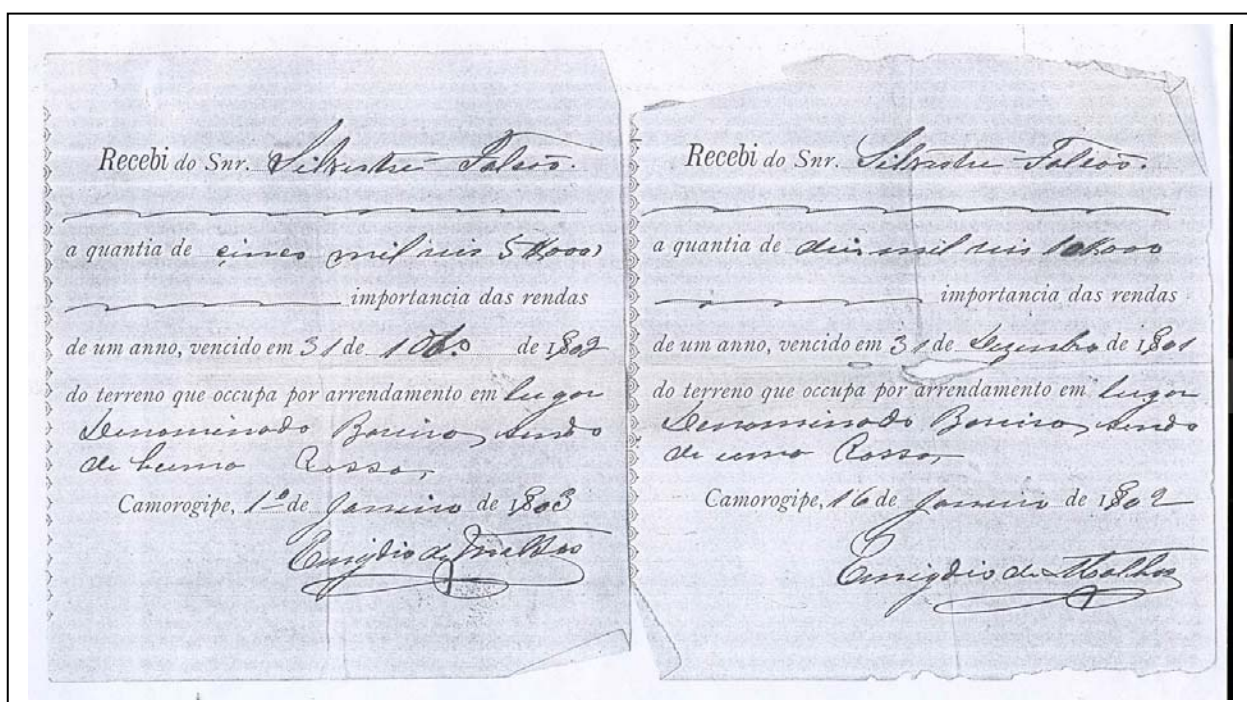 Recebi do Snr. Silvestre Falcão.
a quantia de cinco mil reis 5$000
importancia das rendas
de um anno, vencido em 31 de 10bro de 1902
do terreno que occupa por arrendamento em lugar
Denominado sendo
de huma Rossa,
Camorogipe, 1º de Janeiro de 1903
Emigdio de Mattos
Recebi do Snr. Silvestre Falcão.
a quantia de dis mil reis 10$000
importancia das rendas
de um anno, vencido em 31 de Dezembro de 1901
do terreno que occupa por arrendamento em lugar
Denominado sendo
de uma Rossa,
Camorogipe, 16 de Janeiro de 1902
Emigdio de Mattos